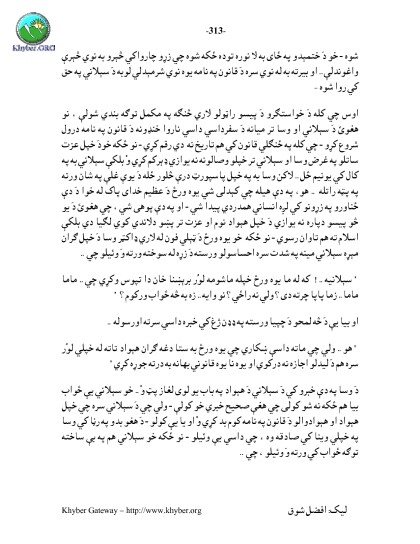 -313-
Khyber.ORG
شوه - خو دَ ختمېدو په ځای به لا نوره توده ځکه شوه چې زړو چارواکي څېرو به نوي څېرې
واغوندلې.. او بېرته به له نوي سره دَ قانون په نامه يوه نوي شرمېدلې لوبه دَ سبلاني په حق
کې روا شوه -
اوس چې کله دَ خواستګرو دَ پيسو راټولو لارې څنګه په مکمل توګه بندې شولې ، نو
هغوئ دَ سبلاني او وسا تر ميانه دَ سفرداسې داسې ناروا خنډونه دَ قانون په نامه درول
شروع کړل - چې کله په ځنګلي قانون کې هم تاريخ نه دي رقم کړي - نو ځکه خو دَ خپل عزت
ساتلو په غرض وسا او سبلاني تر خپلو وصالونه نه يوازې ډېر کم کړي وُ بلکې سبلاني به په
کال کې يونيم ځل .. لاکن وسا به په خپل پاسپورټ درې څلور ځله دَ يوې غلې په شان ورته
په پټه راتله .. هو ، په دې هيله چې کېدلی شي يوه ورځ دَ عظيم خدای پاک له خوا دَ دې
ځناورو په زړونو کې لږه انساني همدردي پيدا شي - او په دې پوهی شي ، چې هغوئ دَ يو
څو پيسو دپاره نه يوازې دَ خپل هېواد نوم او عزت تر پښو دلاندې کوي لګيا دي بلکې
اسلام ته هم تاوان رسوي - نو ځکه خو يوه ورځ دَ ټېلي فون له لارې ډاکټر وسا دَ خپل ګران
مېړه سبلاني مينه په شدت سره احساسولو ورسته دَ زړه له سوخته ورته وَ وئيلو چې ..
" سبلانيه .. ! که له ما يوه ورځ خپله ماشومه لوُر برېښنا خان دا تپوس وکړي چې .. ماما
ماما .. زما پاپا چرته دی؟ ولې نه راځي؟ نو وايه .. زه به څه ځواب ورکوم؟ "
او بيا يې دَ څه لمحو دَ چپيا ورسته په ډډن زغ کې خبره داسې سرته اورسوله ..
" هو .. ولې چې ماته داسې ښکاري چې يوه ورځ به ستا دغه ګران هېواد تاته له خپلې لوُر
سره هم دَ ليدلو اجازه نه درکوي او يوه نا يوه قانوني بهانه به درته جوړه کړي "
دَ وسا په دې خبرو کې دَ سبلاني دَ هېواد په باب يو لوی لغاز پټ وُ .. خو سبلاني يې ځواب
بيا هم ځکه نه شو کولی چې هغې صحيح خبرې خو کولې - ولې چې دَ سبلاني سره چې خپل
هېواد او هېوادوالو دَ قانون په نامه کوم بد کړي وُ او يا يې کولو - دَ هغو بدو په رڼا کې وسا
په خپلې وينا کې صادقه وه ، چې داسې يې وئيلو - نو ځکه خو سبلاني هم په بې ساخته
توګه ځواب کې ورته وَ وئيلو ، چې ..
ليک: افضل شوق
Khyber Gateway – http://www.khyber.org